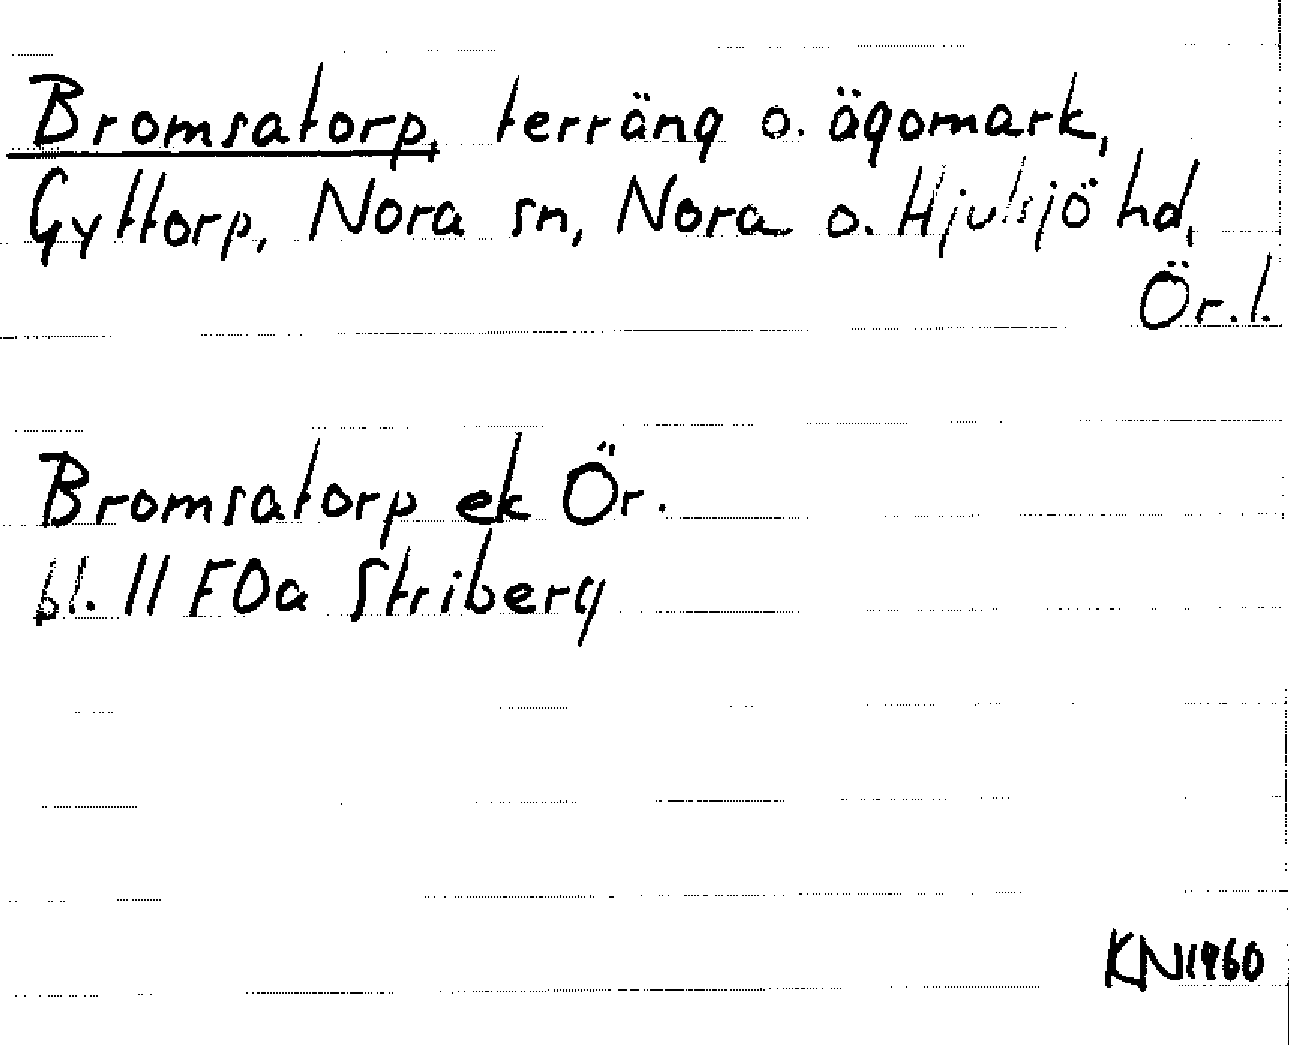 Bromsatorp, terräng o. ägomark,
Gyttorp, Nora sn, Nora o. Hjulsjö hd,
Ör. l.
Bromsatorp ek Ör.
bl. 11 F0a Striberg
KN 1960